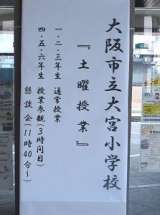 大阪市立大宮小学校
『土曜授業』
一・二・三年生 通常授業
四・五・六年生 授業参観(3時間目)
懇談会(11時40分~)